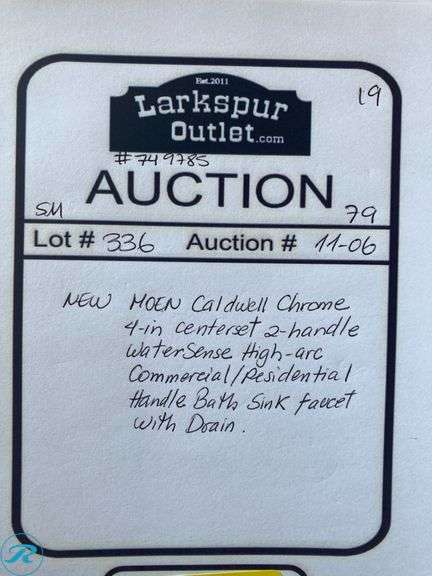 Est. 2011
19
Larkspur
Outlet.com
#749785
AUCTION
SM 79
Lot # 336 Auction # 11-06
NEW MOEN Caldwell Chrome
4-in centerset 2-handle
WaterSense High-arc
Commercial/Residential
Handle Bath Sink faucet
with Drain.
R